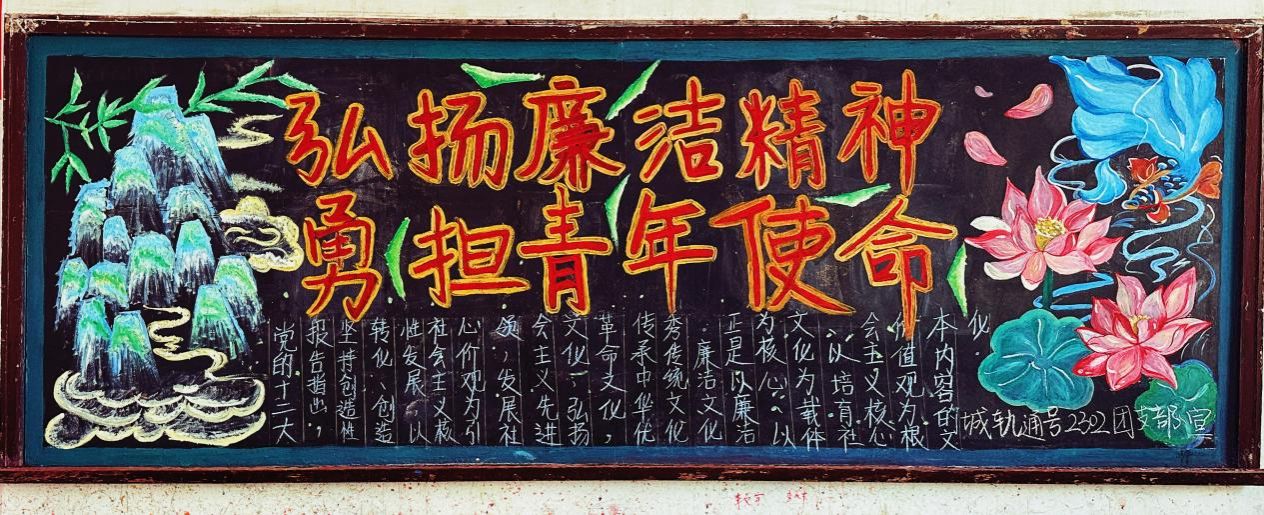 弘扬廉洁精神
勇担青年使命
党的十二大
报告指出，
坚持创造性
转化、创造
性发展 以
社会主义核
心价观为引
领，发展社
会主义先进
文化，弘扬
革命文化，
传承中华优
秀传统文化
.廉洁文化
正是以廉洁
为核心，以
文化为载体
，以培育社
会主义核心
价值观为根
本内容的文
化.
城轨通号2302团支部 宣